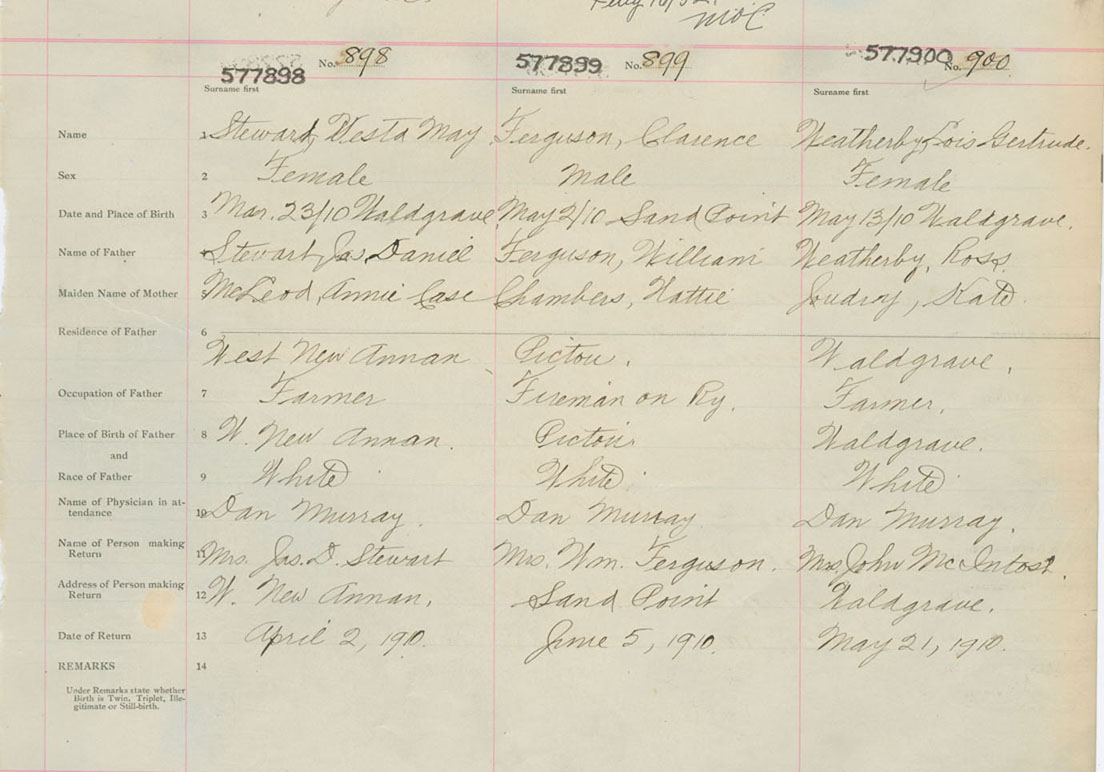 577898 No. 898 577899 No. 899 577900 No. 900
Surname first Surname first Surname first
Name 1 Steward, Vesta May Ferguson, Clarence Weatherby, Lois Gertrude.
Sex 2 Female Male Female
Date and Place of Birth 3 Mar. 23/10 Waldgrave. May 2/10 Sand Point May 13/10 Waldgrave.
Name of Father Stewart, Jas. Daniel Ferguson, William Weatherby, Ross.
Maiden Name of Mother 5 McLeod, Annie Case Chambers, Hattie Joudroy, Kate.
Residence of Father 6
West New Annan Pictou. Waldgrave.
Occupation of Father 7 Farmer Fireman on Ry. Farmer.
Place of Birth of Father 8 W. New Annan. Pictou Waldgrave.
and
Race of Father 9 White White White
Name of Physician in at-
tendance 10 Dan Murray. Dan Murray Dan Murray.
Name of Person making
Return 11 Mrs. Jas. D. Stewart Mrs. Wm. Ferguson. Mrs. John McIntosh.
Address of Person making
Return 12 W. New Annan. Sand Point Waldgrave.
Date of Return 13 April 2, 1910. June 5, 1910. May 21, 1910.
REMARKS 14
Under Remarks state whether
Birth is Twin, Triplet, Ille-
gitimate or Still-birth.